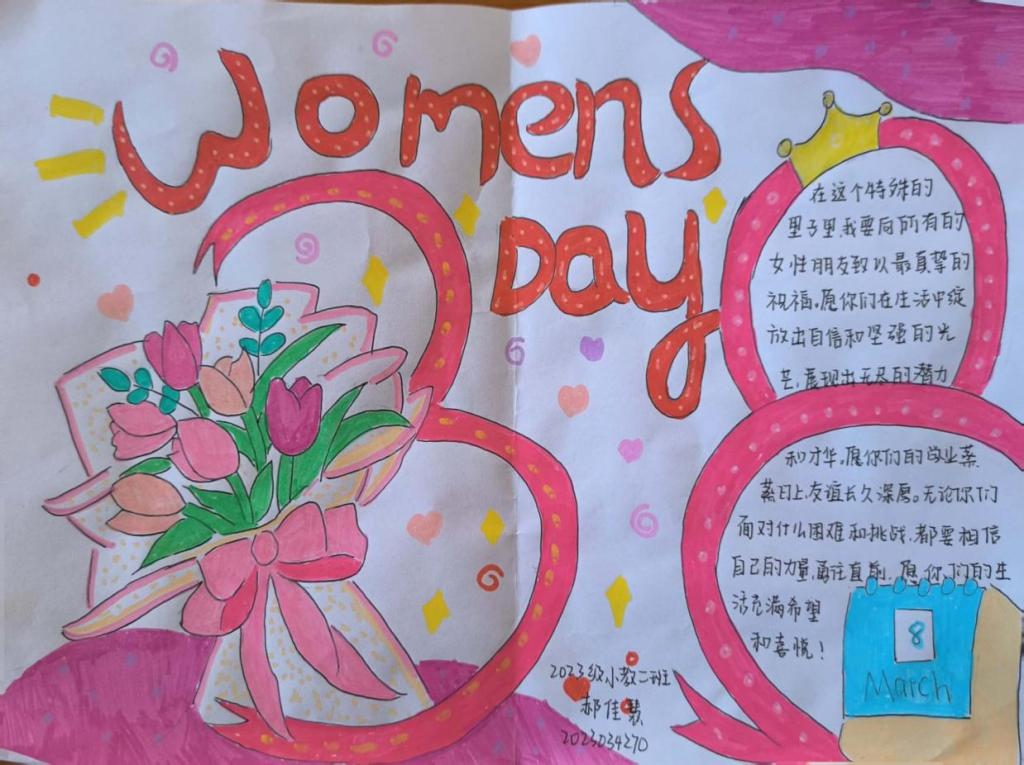 Womens
Day
在这个特殊的
日子里,我要向所有的
女性朋友致以最真挚的
祝福。愿你们在生活中绽
放出自信和坚强的光
芒,展现出无尽的潜力
和才华。愿你们的
蒸日上,友谊长久深厚。无论你们
面对什么困难和挑战,都要相信
自己的力量,勇往直前。愿你们的生
活充满希望
和喜悦!
8
March
2023级小教二班
郝佳慧
2023034270